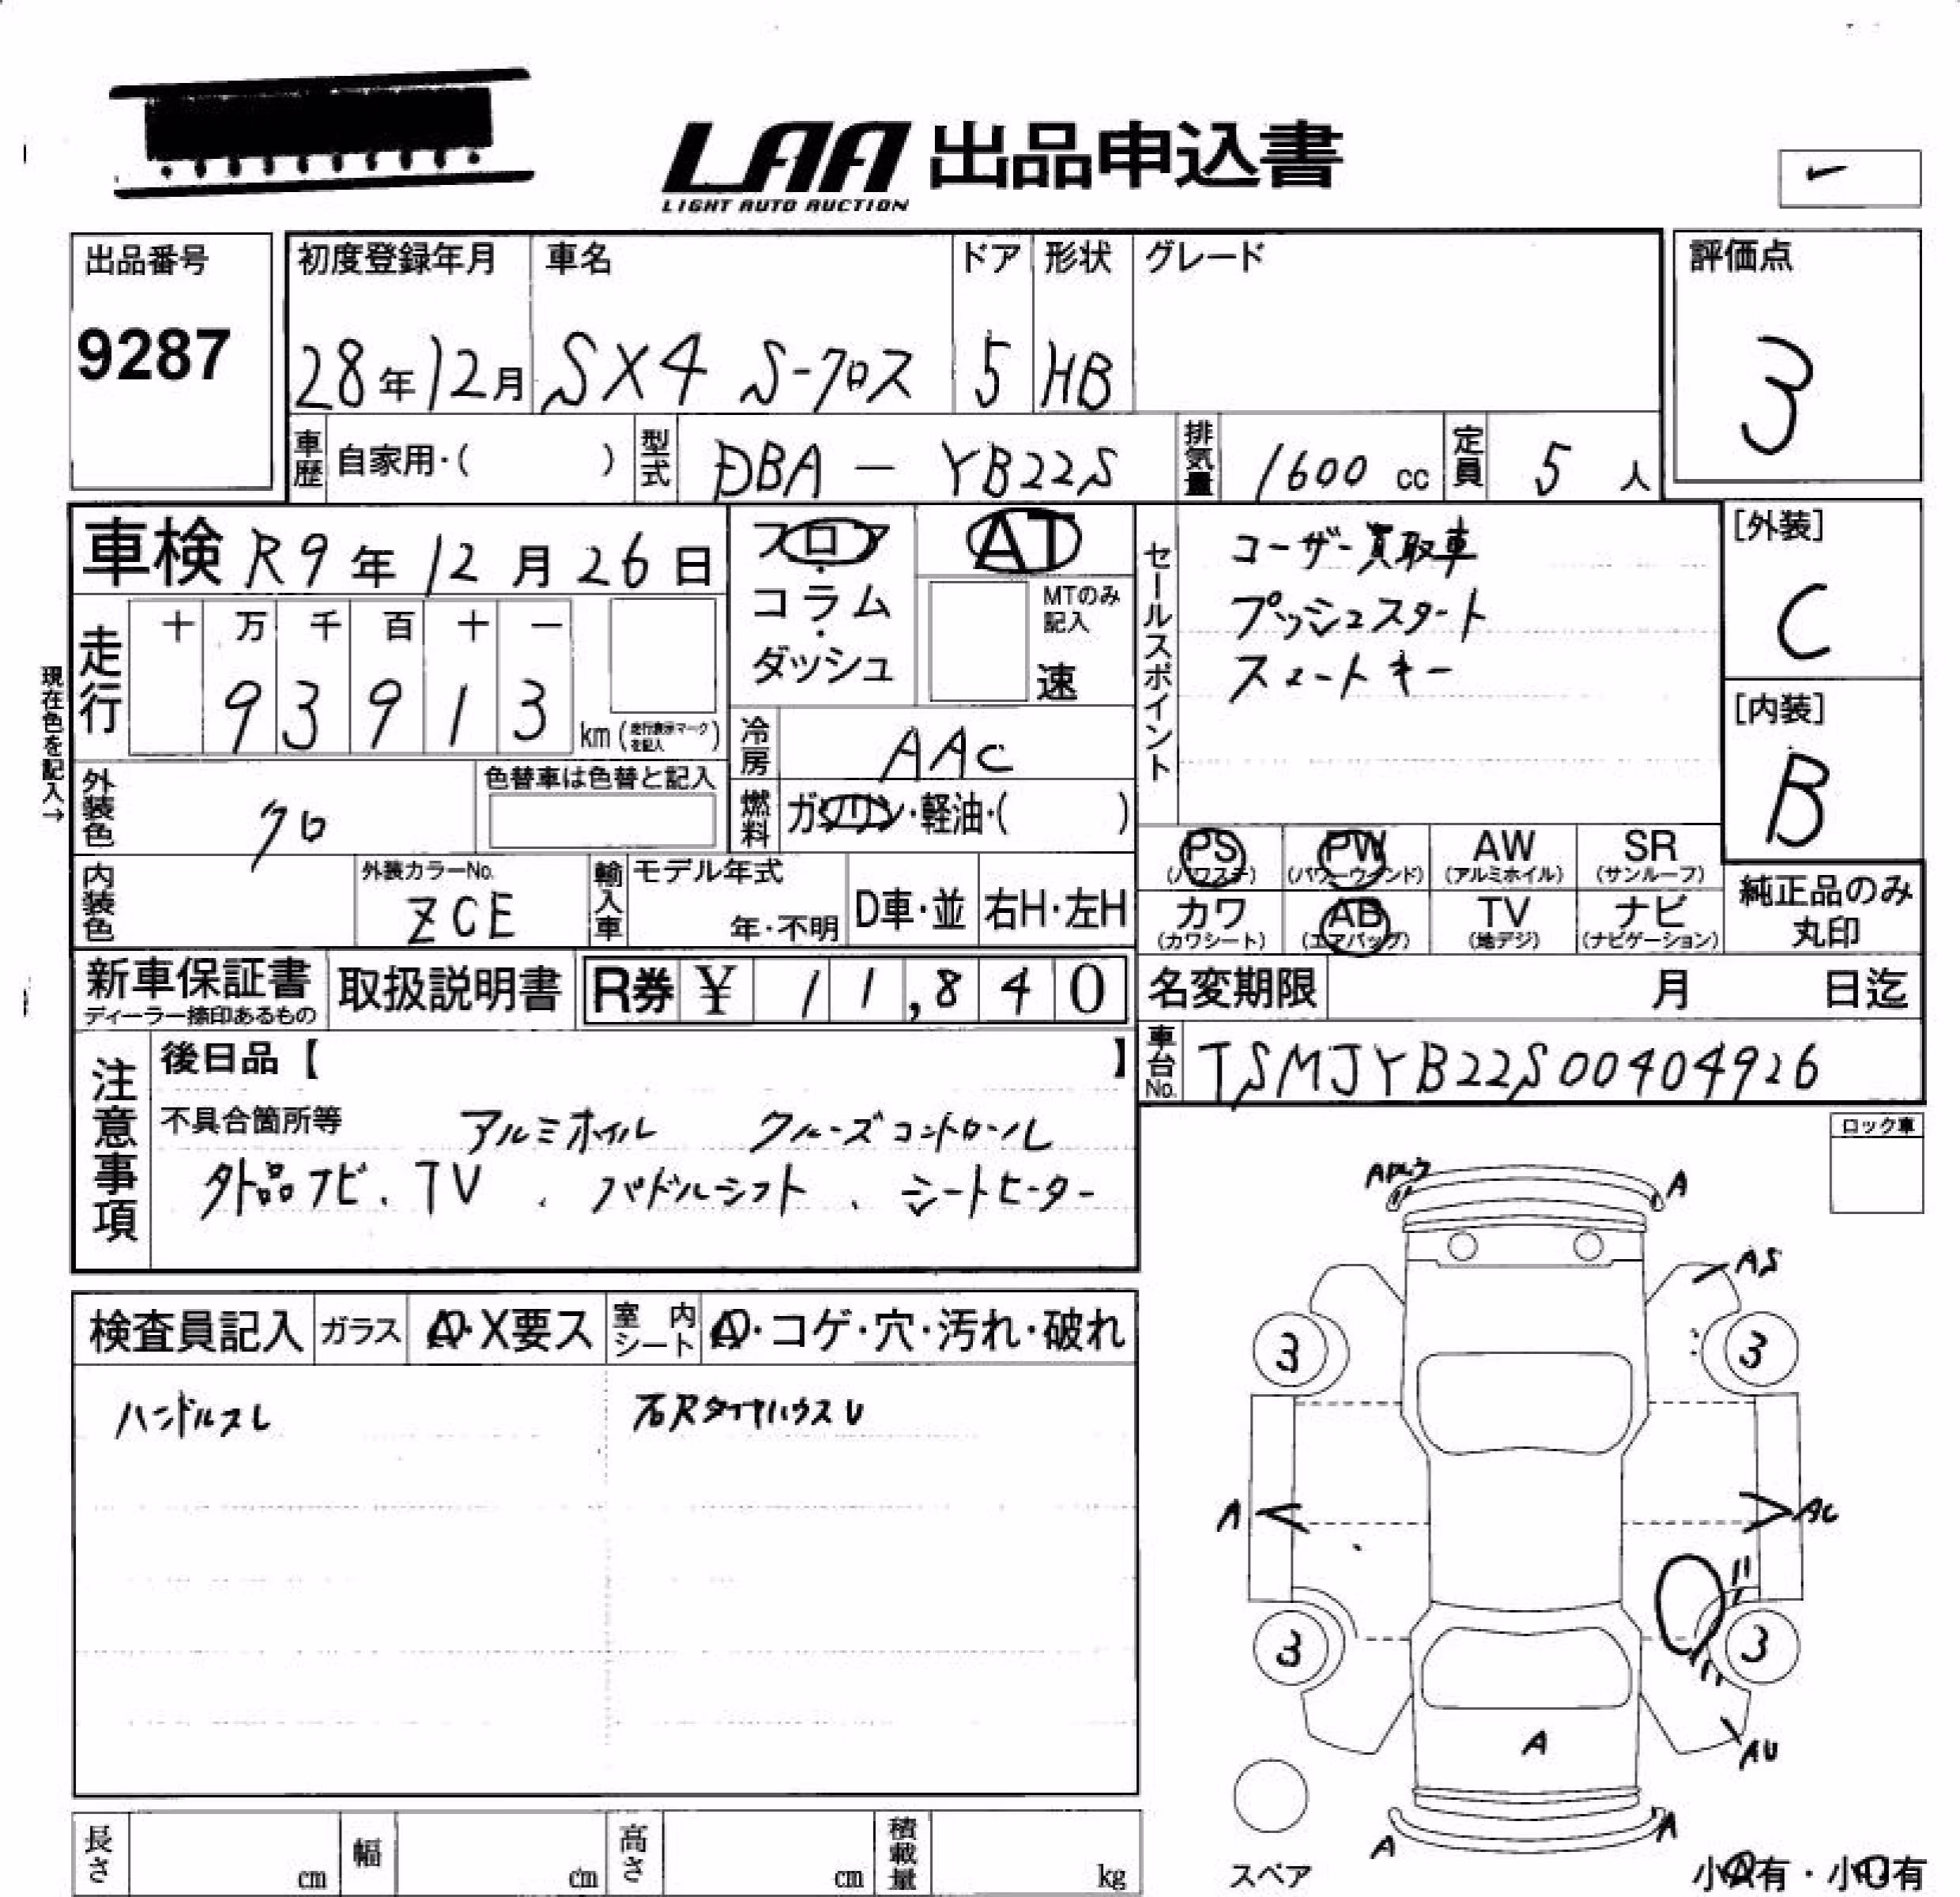 LAA 出品申込書
LIGHT AUTO AUCTION
出品番号 初度登録年月 車名 ドア 形状 グレード 評価点
9287 28年12月 SX4 S-クロス 5 HB 3
車歴 自家用・( ) 型式 DBA - YB22S 排気量 1600 cc 定員 5 人
車検 R9年12月26日 フロア・コラム・ダッシュ AT
MTのみ記入 速
セールスポイント
ユーザー買取車
プッシュスタート
スマートキー
[外装] C
[内装] B
現在色を記入→
走行 十 万 千 百 十 一
9 3 9 1 3 km (走行表示マークを記入)
冷房 AAC
外装色 クロ 色替車は色替と記入
燃料 ガソリン・軽油・( )
PS (パワステ) PW (パワーウィンド) AW (アルミホイル) SR (サンルーフ)
カワ (カワシート) AB (エアバッグ) TV (地デジ) ナビ (ナビゲーション)
純正品のみ丸印
内装色 外装カラーNo. ZCE 輸入車 モデル年式 年・不明 D車・並 右H・左H
新車保証書 ディーラー捺印あるもの 取扱説明書 R券 ¥ 11,840
名変期限 月 日迄
車台No. TSMJYB22S00404926
注意事項
後日品【 】
不具合箇所等 アルミホイル クルーズコントロール
外品ナビ、TV、パドルシフト、シートヒーター
ロック車
検査員記入 ガラス A・X要ス 室内シート A・コゲ・穴・汚れ・破れ
ハンドルスレ 右RタイヤハウスU
A
AS
3 3
A AC
3 3
AU
A
A A
スペア
長さ cm 幅 cm 高さ cm 積載量 kg
小A有・小U有